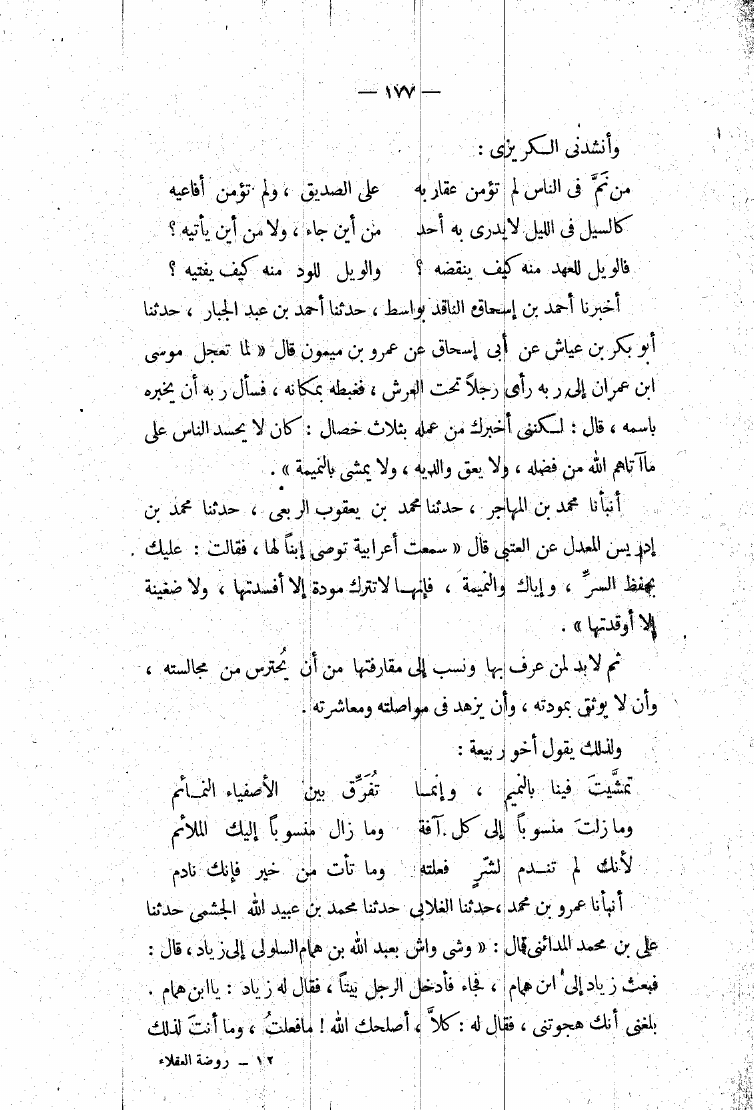 — ١٧٧ —
وأنشدنى الكريزى :
من نَمَّ فى الناس لم تؤمن عقاربه على الصديق ، ولم تؤمن أفاعيه
كالسيل فى الليل لايدرى به أحد من أين جاء ، ولا من أين يأتيه ؟
فالويل للعهد منه كيف ينقضه ؟ والويل للود منه كيف يفتيه ؟
أخبرنا أحمد بن إسحاق الناقد بواسط ، حدثنا أحمد بن عبد الجبار ، حدثنا
أبو بكر بن عياش عن أبى إسحاق عن عمرو بن ميمون قال « لما تعجل موسى
ابن عمران إلى ربه رأى رجلاً تحت العرش ، فغبطه بمكانه ، فسأل ربه أن يخبره
باسمه ، قال : لكننى أخبرك من عمله بثلاث خصال : كان لا يحسد الناس على
ماآتاهم الله من فضله ، ولا يعق والديه ، ولا يمشى بالنميمة » .
أنبأنا محمد بن المهاجر ، حدثنا محمد بن يعقوب الربعى ، حدثنا محمد بن
إدريس المعدل عن العتبى قال « سمعت أعرابية توصى إبناً لها ، فقالت : عليك
بحفظ السرِّ ، وإياك والنميمة ، فإنها لاتترك مودة إلا أفسدتها ، ولا ضغينة
إلا أوقدتها » .
ثم لابد لمن عرف بها ونسب إلى مقارفتها من أن يُحترس من مجالسته ،
وأن لا يوثق بمودته ، وأن يزهد فى مواصلته ومعاشرته .
ولذلك يقول أخو ربيعة :
تمشَّيتَ فينا بالنميم ، وإنما تُفَرِّق بين الأصفياء النمائم
وما زلتَ منسوباً إلى كل آفة وما زال منسوباً إليك الملائم
لأنك لم تندم لشرٍّ فعلته وما تأت من خير فإنك نادم
أنبأنا عمرو بن محمد ، حدثنا الغلابى حدثنا محمد بن عبيد الله الجشمى حدثنا
على بن محمد المدائنى قال : « وشى واش بعبد الله بن همام السلولى إلى زياد ، قال :
فبعث زياد إلى ابن همام ، فجاء فأدخل الرجل بيتاً ، فقال له زياد : ياابن همام .
بلغنى أنك هجوتنى ، فقال له : كلاَّ ، أصلحك الله ! مافعلتُ ، وما أنتَ لذلك
١٢ — روضة العقلاء